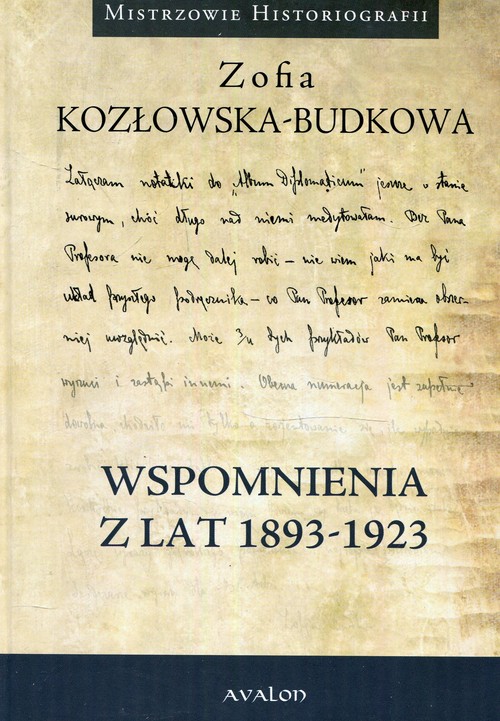 Mistrzowie Historiografii
Zofia
KOZŁOWSKA-BUDKOWA
Załączam notatki do „Album Diplomaticum" jeszcze w stanie
surowym, choć długo nad niemi medytowałam. Bez Pana
Profesora nie mogę dalej robić – nie wiem jaki ma być
układ przyszłego podręcznika – co Pan Profesor zamierza obszer-
niej uwzględnić. Może 3/4 tych przykładów Pan Profesor
wyrzuci i zastąpi innemi. Obecna numeracja jest zupełnie
dowolna, chodziło mi tylko o zorientowanie się, ile
WSPOMNIENIA
Z LAT 1893-1923
AVALON